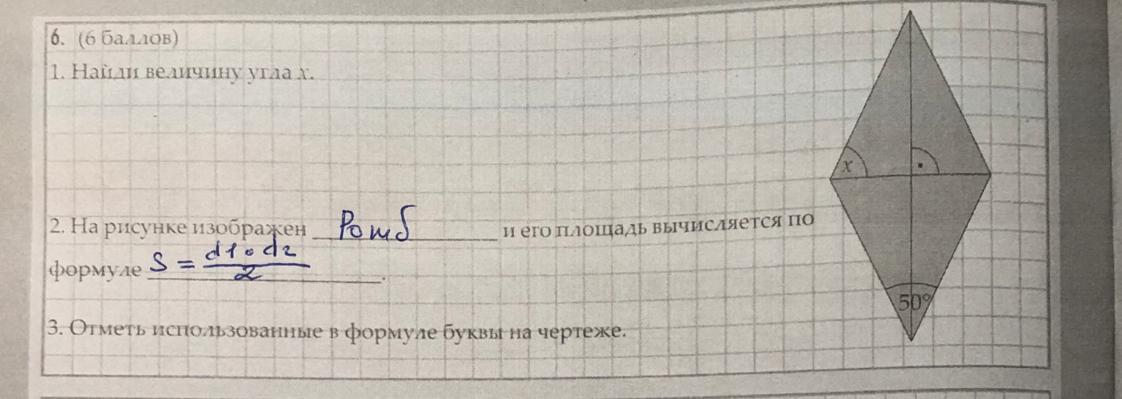 6. (6 баллов)
1. Найди величину угла x.
x
2. На рисунке изображен Ромб и его площадь вычисляется по
формуле S = d1 · d2 / 2.
50°
3. Отметь использованные в формуле буквы на чертеже.